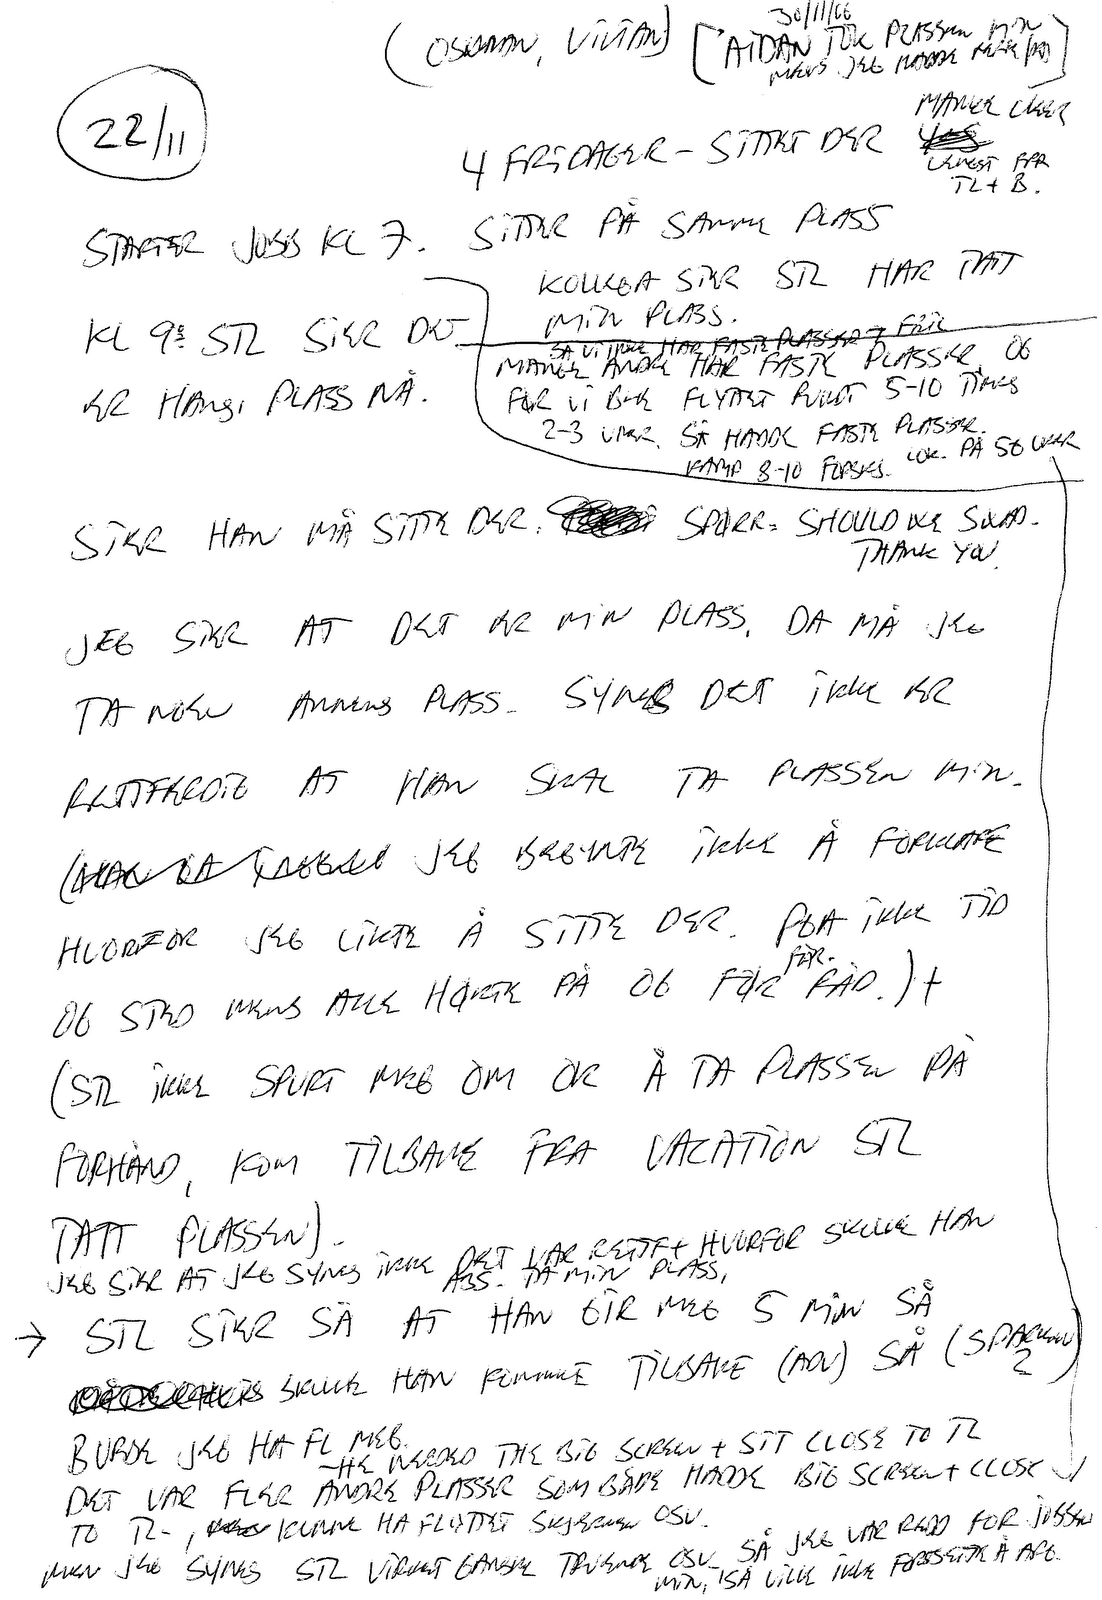 30/11/06
( OSMAN, VIVIAN) [AIDAN TOK PLASSEN MIN
MENS JEG HADDE]
22/11
MANGE UKER
4 FRIDAGER - SITTET DER
LENGST FRA
TL + B.
STARTER JOBB KL 7. SITTER PÅ SAMME PLASS
KOLLEGA SIER STL HAR TATT
MIN PLASS.
KL 9: STL SIER DET
ER HANS PLASS NÅ.
SA VI IKKE HAR FASTE PLASSER
MANGE ANDRE HAR FASTE PLASSER, OG
FØR VI BLE FLYTTET RUNDT 5-10 TIMES
2-3 UKER. SÅ HADDE FASTE PLASSER.
8-10 PÅ 56 UKER
SIER HAN MÅ SITTE DER. SPØRR: SHOULD WE
THANK YOU.
JEG SIER AT DET ER MIN PLASS. DA MÅ JEG
TA NOEN ANNENS PLASS. SYNES DET IKKE ER
RETTFERDIG AT HAN SKAL TA PLASSEN MIN.
JEG BEGYNTE IKKE Å FORKLARE
HVORFOR JEG LIKTE Å SITTE DER. PGA IKKE TID
OG STED MENS ALLE HØRTE PÅ OG FØR FÅR RÅD.) +
(STL IKKE SPURT MEG OM OK Å TA PLASSEN PÅ
FORHÅND, KOM TILBAKE FRA VACATION STL
TATT PLASSEN).
JEG SIER AT JEG SYNES IKKE DET VAR RETTF + HVORFOR SKULLE HAN
ABS. TA MIN PLASS,
→ STL SIER SÅ AT HAN GIR MEG 5 MIN SÅ
SKULLE HAN KOMME TILBAKE (ADV) SÅ (SPARKEN)
2
BURDE JEG HA FL MEG.
- HE NEEDED THE BIG SCREEN + SIT CLOSE TO TL
DET VAR FLER ANDRE PLASSER SOM BÅDE HADDE BIG SCREEN + CLOSE
TO TL-, KUNNE HA FLYTTET SKJERMEN OSV.
MEN JEG SYNES STL VIRKET GANSKE TRUENDE OSV. SÅ JEG VAR REDD FOR JOBBEN
MIN, SÅ VILLE IKKE FORTSETTE Å ARG.